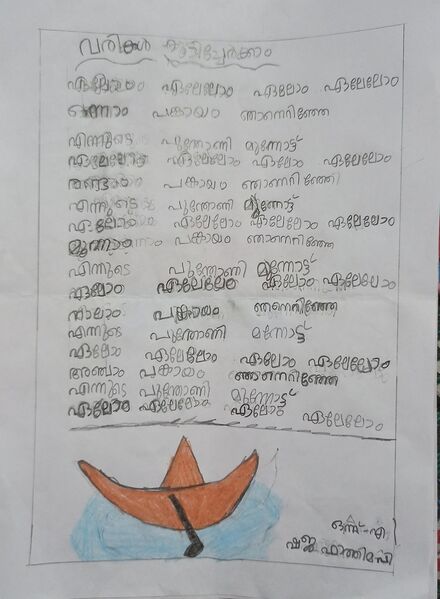 വരികൾ കൂട്ടിച്ചേർക്കാം
ഏലോം ഏലേലോം ഏലോം ഏലേലോം
ഒന്നാം പങ്കായം ഞാനെറിഞ്ഞേ
എന്നുടെ പൂന്തോണി മുന്നോട്ട്
ഏലേലോം ഏലേലോം ഏലോം ഏലേലോം
രണ്ടാം പങ്കായം ഞാണെറിഞ്ഞി
എന്നുടെ പൂന്തോണി മുന്നോട്ട്
ഏലോം ഏലേലോം ഏലേലോം ഏലേലോം
മൂന്നാം പങ്കായം ഞാനെറിഞ്ഞേ
എന്നുടെ പൂന്തോണി മുന്നോട്ട്
ഏലോം ഏലേലോം ഏലോം ഏലേലോം
നാലാം പങ്കായം ഞനെറിഞ്ഞേ
എന്നുടെ പൂന്തോണി മന്നോട്ട്
ഏലോം ഏലേലോം ഏലോം ഏലേലോം
അഞ്ചാം പങ്കായം ഞാനെറിഞ്ഞേ
എന്നുടെ പൂന്തോണി മുന്നോട്ട്
ഏലോം ഏലേലോം ഏലോം ഏലേലോം
ഒന്ന്-എ
ഫാത്തിമ